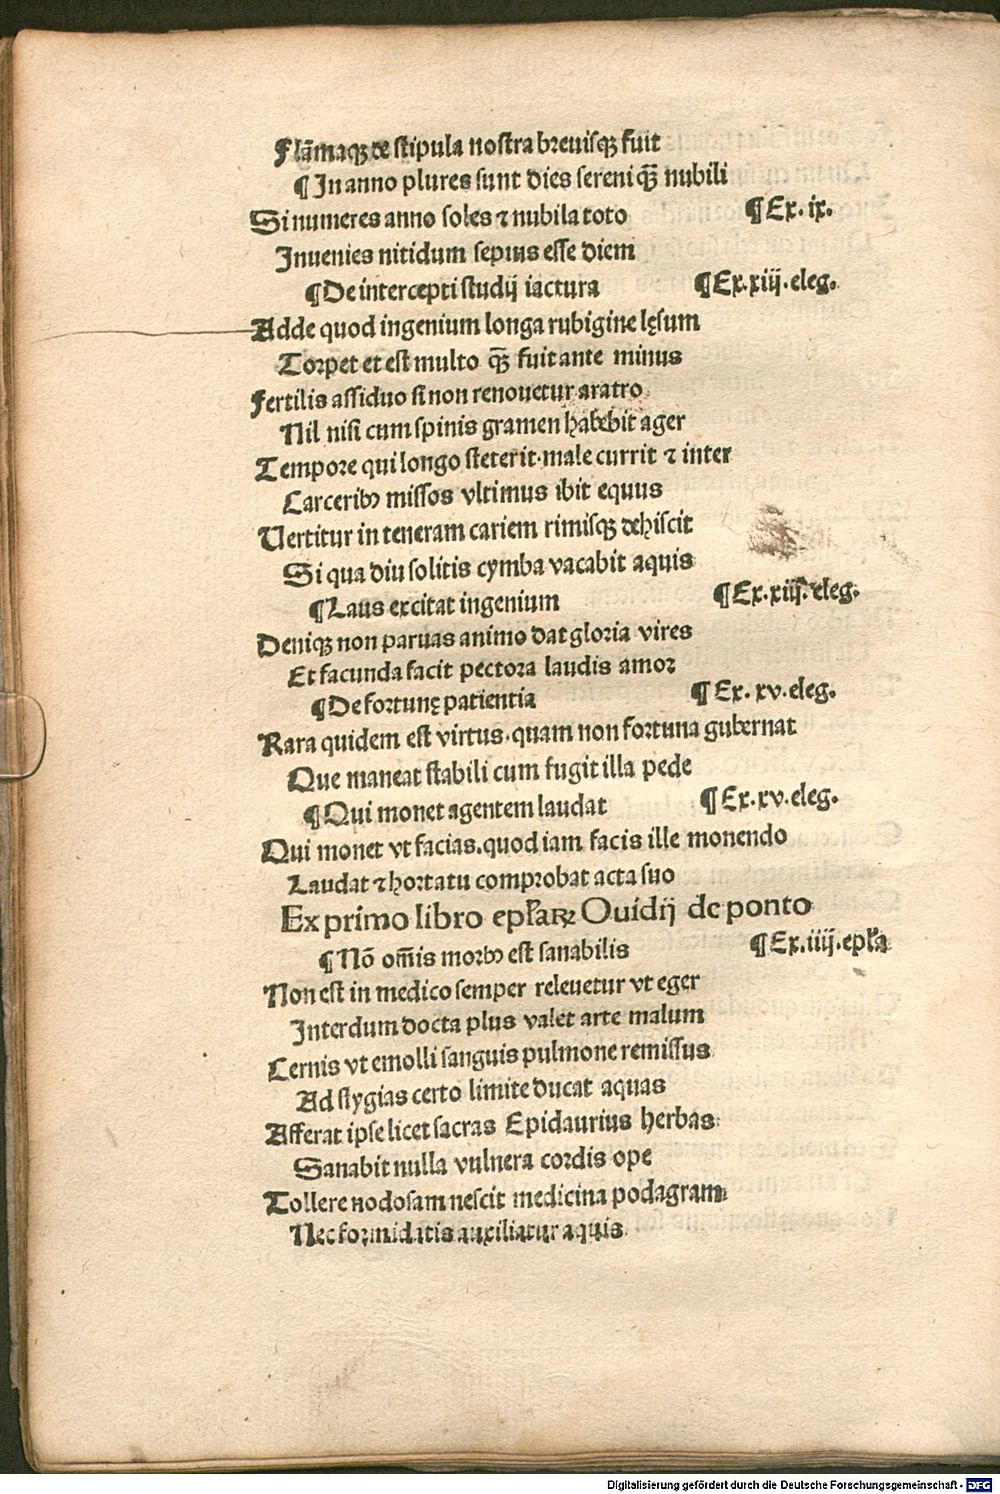 Flāmaqꝫ de stipula nostra breuisqꝫ fuit
¶ In anno plures sunt dies sereni qꝫ̄ nubili
Si numeres anno soles ⁊ nubila toto ¶ Ex. ix.
Inuenies nitidum sepius esse diem
¶ De intercepti studij iactura ¶ Ex. xiij. eleg.
Adde quod ingenium longa rubigine lęsum
Torpet et est multo qꝫ̄ fuit ante minus
Fertilis assiduo si non renouetur aratro
Nil nisi cum spinis gramen habebit ager
Tempore qui longo steterit. male currit ⁊ inter
Carceribꝰ missos vltimus ibit equus
Uertitur in teneram cariem rimisqꝫ dehiscit
Si qua diu solitis cymba vacabit aquis
¶ Laus excitat ingenium ¶ Ex. xiij. eleg.
Deniqꝫ non paruas animo dat gloria vires
Et facunda facit pectora laudis amor
¶ De fortunę patientia ¶ Ex. xv. eleg.
Rara quidem est virtus. quam non fortuna gubernat
Que maneat stabili cum fugit illa pede
¶ Qui monet agentem laudat ¶ Ex. xv. eleg.
Qui monet vt facias. quod iam facis ille monendo
Laudat ⁊ hortatu comprobat acta suo
Ex primo libro epl̄aꝝ Ouidij de ponto
¶ Nō om̄is morbꝰ est sanabilis ¶ Ex. iiij. epl̄a
Non est in medico semper releuetur vt eger
Interdum docta plus valet arte malum
Cernis vt e molli sanguis pulmone remissus
Ad stygias certo limite ducat aquas
Afferat ipse licet sacras Epidaurius herbas
Sanabit nulla vulnera cordis ope
Tollere nodosam nescit medicina podagram
Nec formidatis auxiliatur aquis
Digitalisierung gefördert durch die Deutsche Forschungsgemeinschaft - DFG